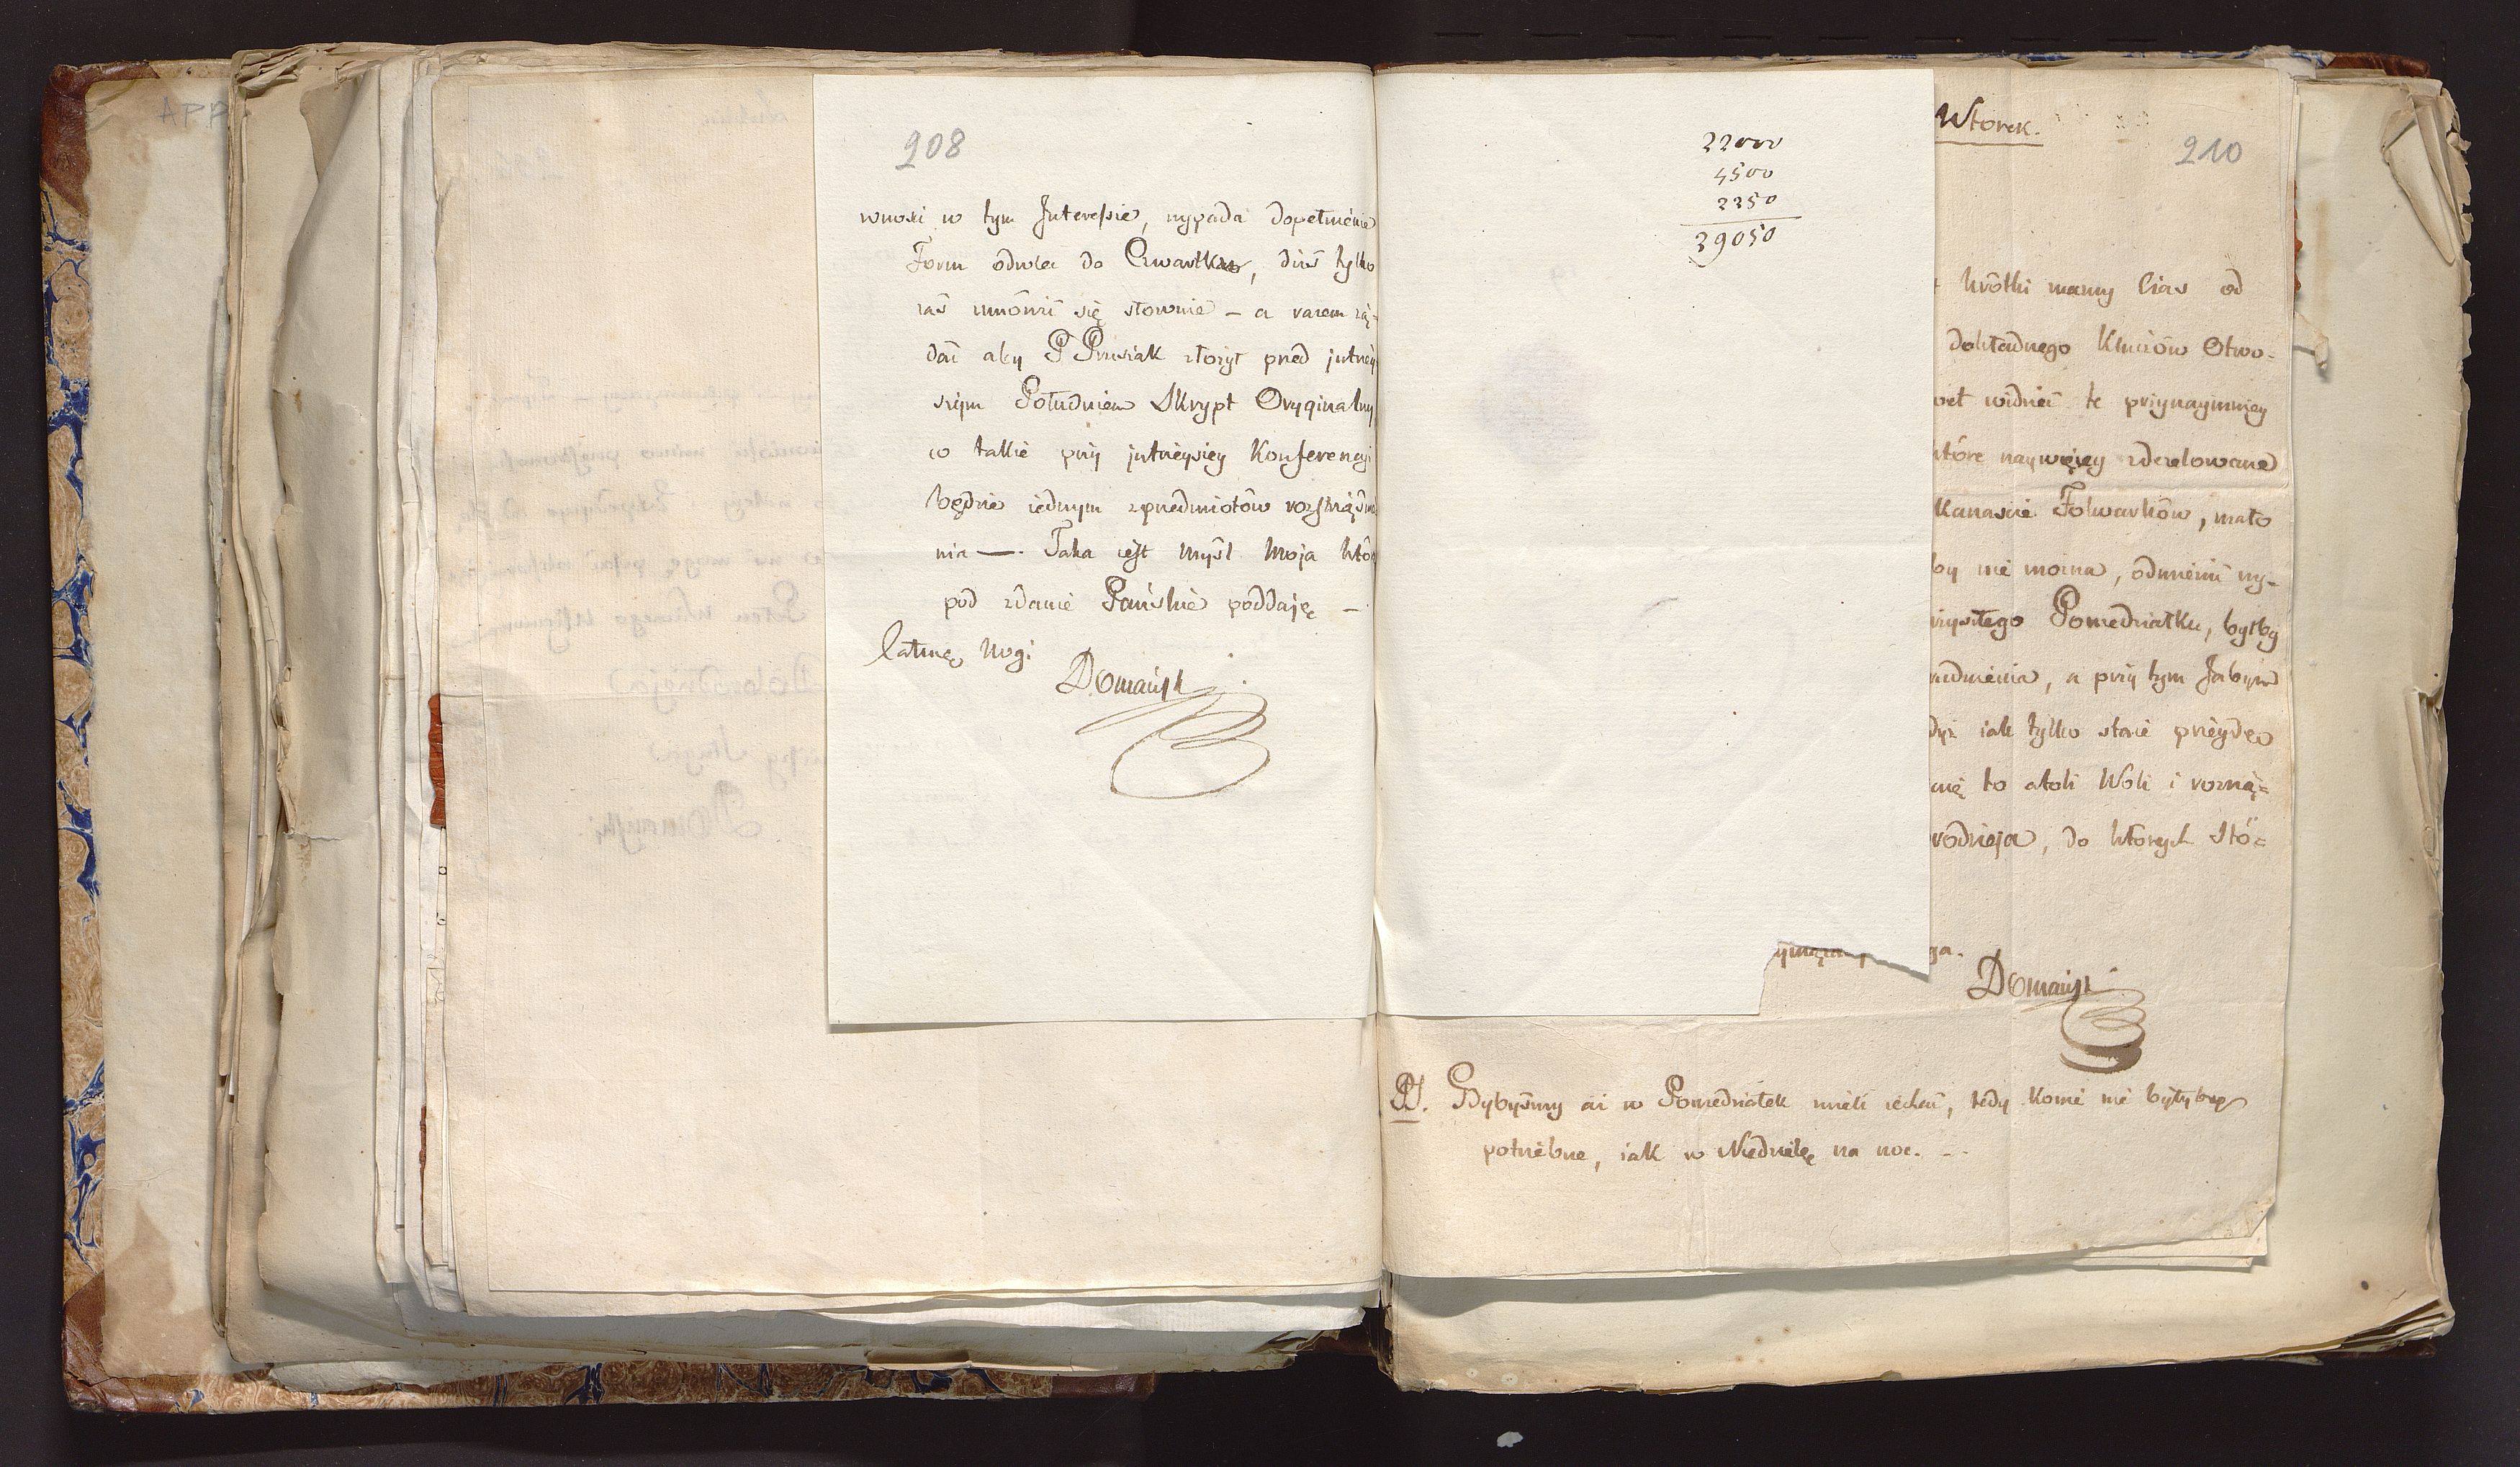 APP
208
wnosi w tym Interessie, wypada dopełnienie
Form odwlec do Czwartku, dziś tylko
zaś umówić się słownie – a razem żą-
dać aby P Prusiak złożył przed jutrzey
szym Południem Skrypt Oryginalny
co także przy jutrzeyszey Konferencyi
będzie iednym zprzedmiotów rozstrząśnie
nia —. Taka iest myśl Moja któ
pod zdanie Pańskie poddaję –
całuję Nogi
Domański
22000
4500
2250
29050
Wtorek.
210
krótki mamy Czas od
dokładnego Kluczów Otwo-
widzieć te przynaymniey
które naywięcey zdezelowane
Kanaście Folwarków, mało
by nie można, odmienić wy-
szłego Poniedziałku, byłby
a przy tym Jabym
iak tylko stanie przeydę
to atoli Woli i rozzną-
rodzieja, do których Sto-
ga.
Domański
PS. Gdybyśmy aż w Poniedziałek mieli iechać, tedy Konie nie byłyby
potrzebne, iak w Niedzielę na noc. –